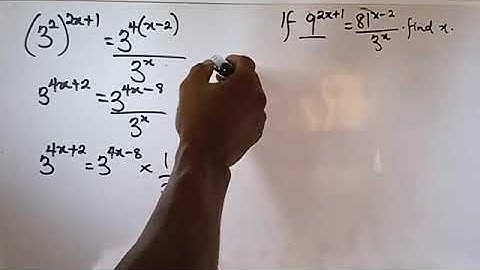 If 9^(2x+1) = 81^(x-2) / 3^x . find x.
(3^2)^(2x+1) = 3^(4(x-2)) / 3^x
3^(4x+2) = 3^(4x-8) / 3^x
3^(4x+2) = 3^(4x-8) × 1